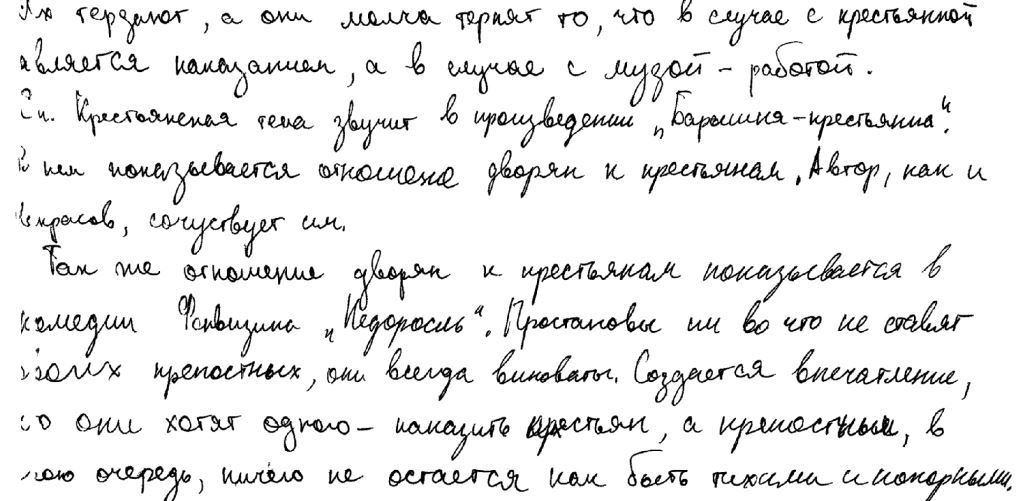 Их терзают, а они молча терпят то, что в случае с крестьянкой
является наказанием, а в случае с музой – работой.
Крестьянская тема звучит в произведении „Барышня-крестьянка“.
В нем показывается отношение дворян к крестьянам. Автор, как и
Некрасов, сочуствует им.
Так же отношение дворян к крестьянам показывается в
комедии Фонвизина „Недоросль“. Простаковы ни во что не ставят
своих крепостных, они всегда виноваты. Создается впечатление,
что они хотят одного – наказить крестьян, а крепостным, в
свою очередь, ничего не остается как быть тихими и покорными.